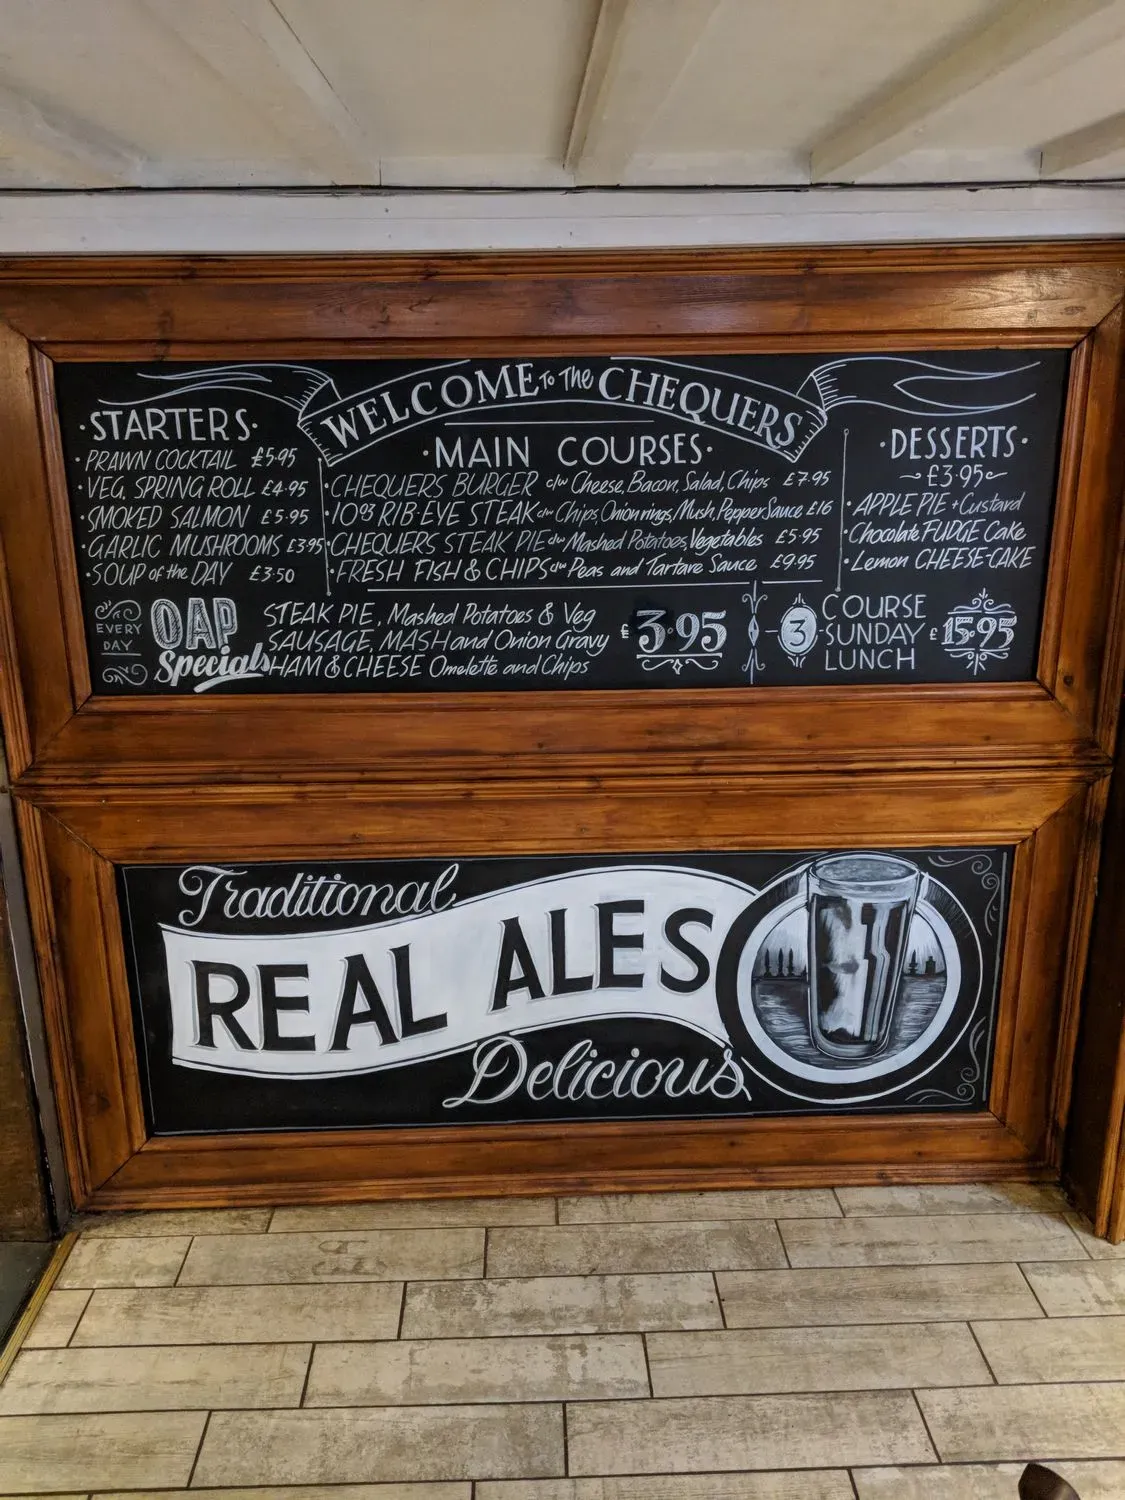 WELCOME To The CHEQUERS
·STARTERS·
·PRAWN COCKTAIL £5·95
·VEG. SPRING ROLL £4·95
·SMOKED SALMON £5·95
·GARLIC MUSHROOMS £3·95
·SOUP of the DAY £3·50
·MAIN COURSES·
·CHEQUERS BURGER c/w Cheese, Bacon, Salad, Chips £7·95
·10oz RIB·EYE STEAK c/w Chips, Onion rings, Mush, Pepper Sauce £16
·CHEQUERS STEAK PIE c/w Mashed Potatoes, Vegetables £5·95
·FRESH FISH & CHIPS c/w Peas and Tartare Sauce £9·95
·DESSERTS·
£3·95
·APPLE PIE + Custard
·Chocolate FUDGE Cake
·Lemon CHEESE-CAKE
EVERY
DAY
OAP
Specials
STEAK PIE, Mashed Potatoes & Veg
SAUSAGE, MASH and Onion Gravy
HAM & CHEESE Omelette and Chips
£3·95
3 COURSE
SUNDAY
LUNCH
£15·95
Traditional
REAL ALES
Delicious